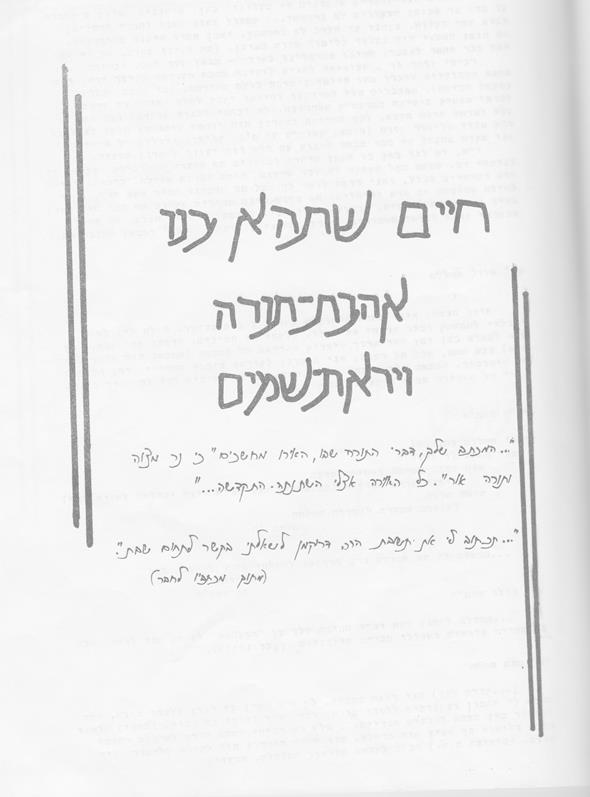 חיים שתהא בנו
אהבת-תורה
ויראת-שמים
"...המכתב שלך, דברי התורה שבו, האירו מחשכים" כי נר מצוה
ותורה אור". כל האוירה אצלי השתנתה. התקדשה..."
"...תכתוב לי את תשובת הרב דרוקמן לשאלתי בקשר לתחום שבת".
(מתוך מכתביו לחבר)